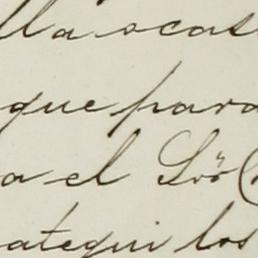 lla ocas
que para
a el Sör
ategui los